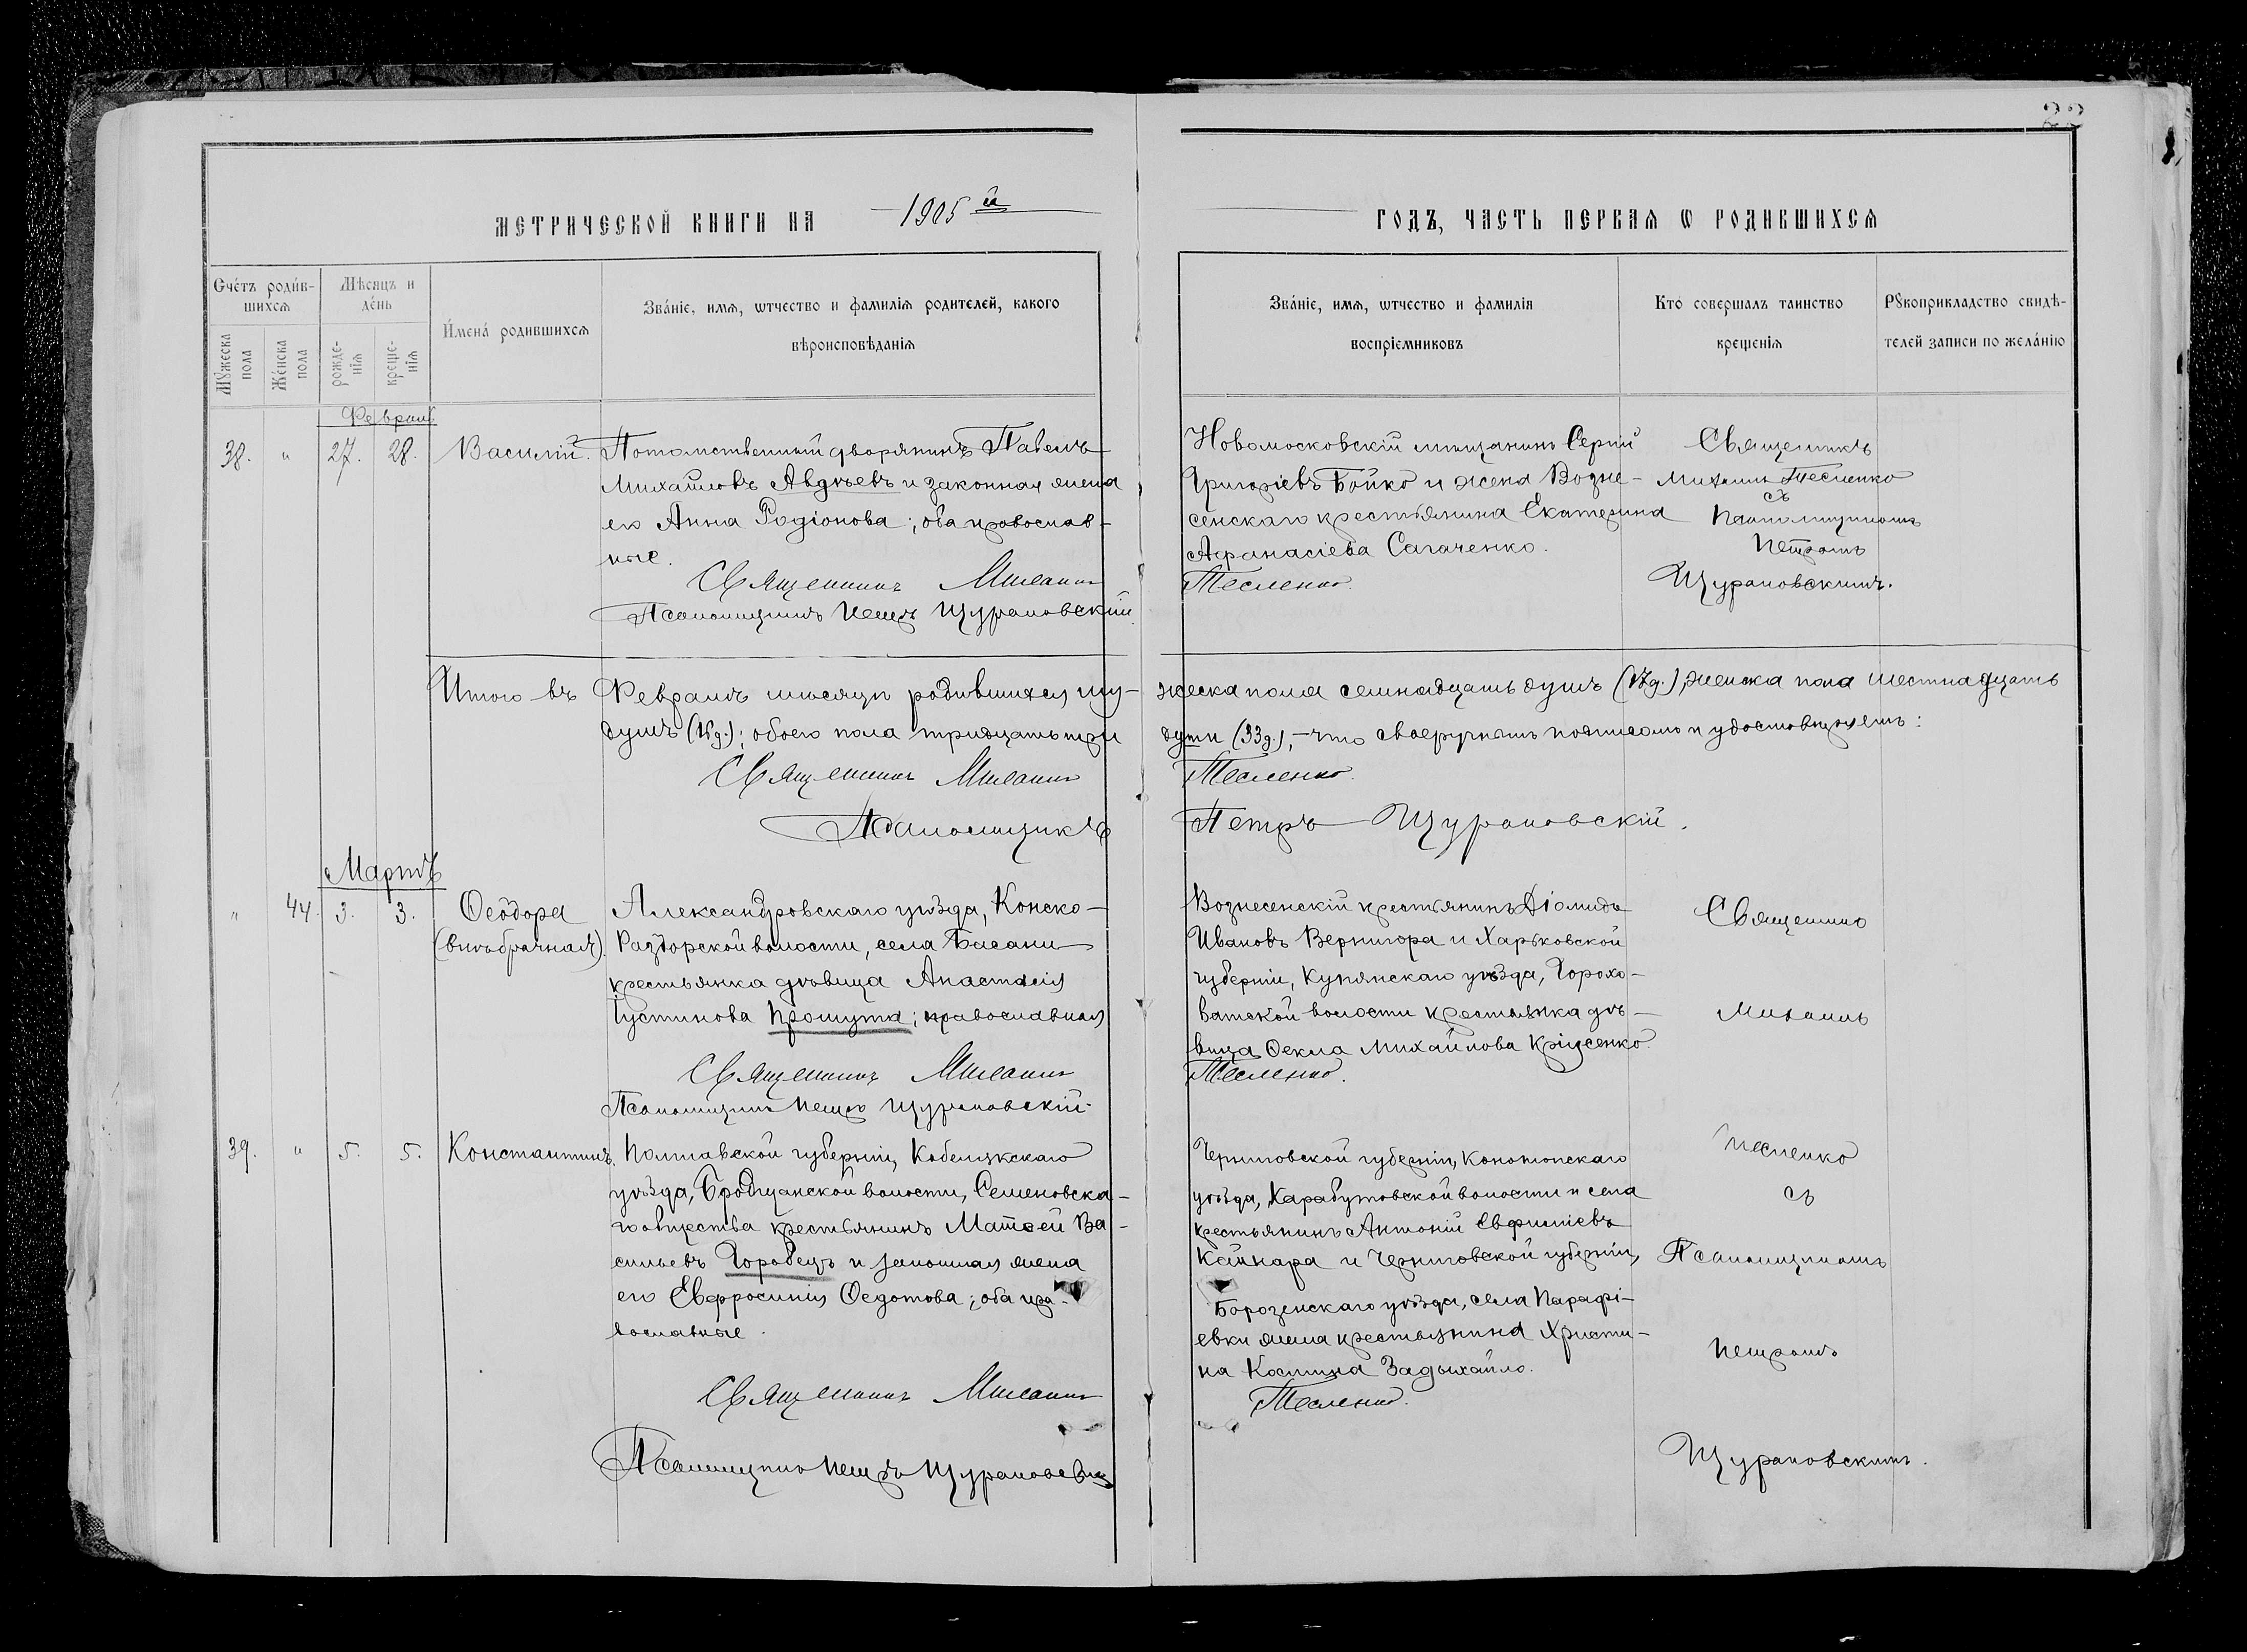 22
МЕТРИЧЕСКОЙ КНИГИ НА 1905й ГОДЪ, ЧАСТЬ ПЕРВАЯ Ѡ РОДИВШИХСЯ
Счетъ родившихся
Мѣсяцъ и день
Имена родившихся
Званіе, имя, ѡтчество и фамилія родителей, какого вѣроисповѣданія
Званіе, имя, ѡтчество и фамилія воспріемниковъ
Кто совершалъ таинство крещенія
Рꙋкоприкладство свидѣтелей записи по желанію
Мꙋжеска пола
Женска пола
рожденія
крещенія
Феврал.
38. " 27. 28. Василій.
Потомственный дворянинъ Павелъ
Михайловъ Авдѣевъ и законная жена
его Анна Родіонова; оба православ-
ные.
Священникъ Михаилъ
Псаломщикъ Петръ Щурановскій
Новомосковскій мѣщанинъ Сергій
Григоріевъ Бойко и жена Возне-
сенскаго крестьянина Екатерина
Афанасіева Сагаченко.
Тесленко.
Священникъ
Михаилъ Тесленко
съ
Псаломщикомъ
Петромъ
Щурановскимъ.
Итого въ Февралѣ мѣсяцѣ родившихся му- жеска пола семнадцать душъ (17д.), женска пола шестнадцать
душъ (16д.); обоего пола тридцать три души (33д.), – что своеручнымъ подписомъ и удостовѣряемъ:
Священникъ Михаилъ Тесленко.
Псаломщикъ Петръ Щурановскій.
Мартъ
" 44. 3. 3. Ѳеодора
(внѣбрачная).
Александровскаго уѣзда, Конско-
Раздорской волости, села Басани
крестьянка дѣвица Анастасія
Іустинова Прошута; православная
Священникъ Михаилъ
Псаломщикъ Петръ Щурановскій.
Вознесенскій крестьянинъ Діомидъ
Ивановъ Вернигора и Харьковской
губерніи, Купянскаго уѣзда, Горохо-
ватской волости крестьянка дѣ-
вица Ѳекла Михайлова
Тесленко.
Священникъ
Михаилъ
39. " 5. 5. Константинъ.
Полтавской губерніи, Кобелякскаго
уѣзда, Бродщанской волости, Семеновска-
го общества крестьянинъ Матѳей Ва-
сильевъ Горобецъ и законная жена
его Евфросинія Ѳедотова; оба пра-
вославные.
Священникъ Михаилъ
Псаломщикъ Петръ Щурановскій
Черниговской губерніи, Конотопскаго
уѣзда, Карабутовской волости и села
крестьянинъ Антоній Евфиміевъ
и Черниговской губерніи,
Борозенскаго уѣзда, села Парафі-
евки жена крестьянина Христи-
на Космина Задыхайло.
Тесленко.
Тесленко
съ
Псаломщикомъ
Петромъ
Щурановскимъ.